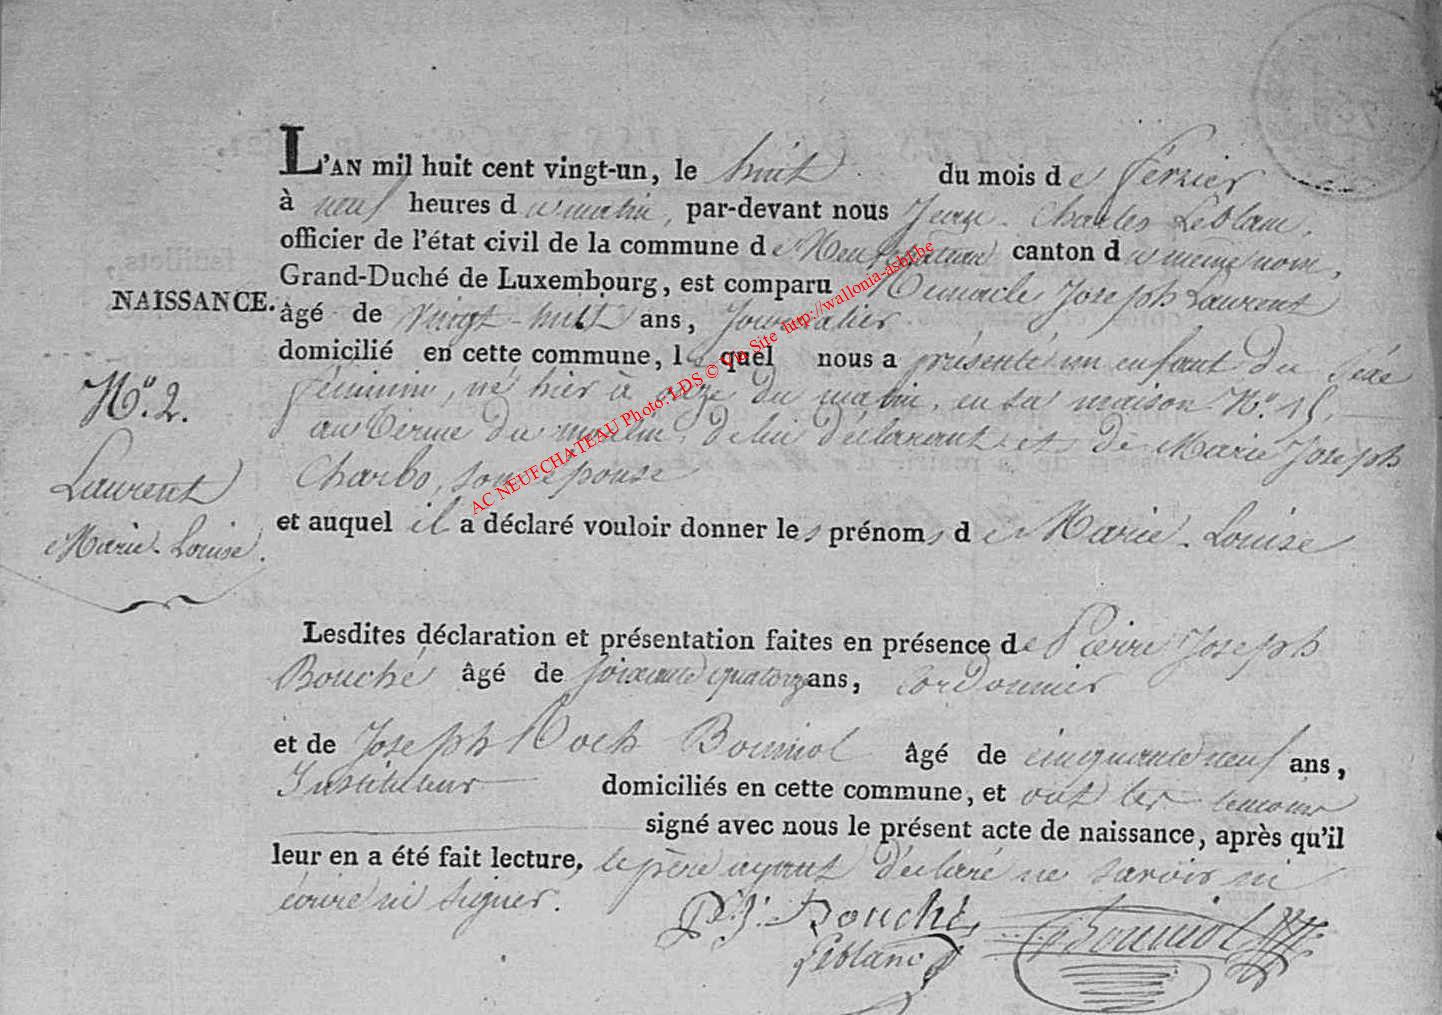 L'AN mil huit cent vingt-un, le huit du mois de fevrier
à neuf heures du matin, par-devant nous Jean-Charles Leblanc,
officier de l'état civil de la commune de Neufchateau canton du même nom,
Grand-Duché de Luxembourg, est comparu Remacle Joseph Laurent
NAISSANCE.
âgé de vingt-huit ans, Journalier
domicilié en cette commune, lequel nous a présenté un enfant du sexe
féminin, né hier à onze du matin, en sa maison N.o 15
au terme du moulin, de lui déclarant et de Marie Joseph
Charbo, son épouse
et auquel il a déclaré vouloir donner les prénoms de Marie-Louise
N.o 2.
Laurent
Marie-Louise.
Lesdites déclaration et présentation faites en présence de Pierre Joseph
Bouché âgé de soixante quatorze ans, Cordonnier
et de Joseph Roch Bouniol âgé de cinquante neuf ans,
Instituteur domiciliés en cette commune, et ont les temoins
signé avec nous le présent acte de naissance, après qu'il
leur en a été fait lecture, le père ayant déclaré ne savoir ni
écrire ni signer.
P. J. Bouché
Leblanc
Bouniol
AC NEUFCHATEAU Photo: LDS © Un Site http://wallonia-asbl.be